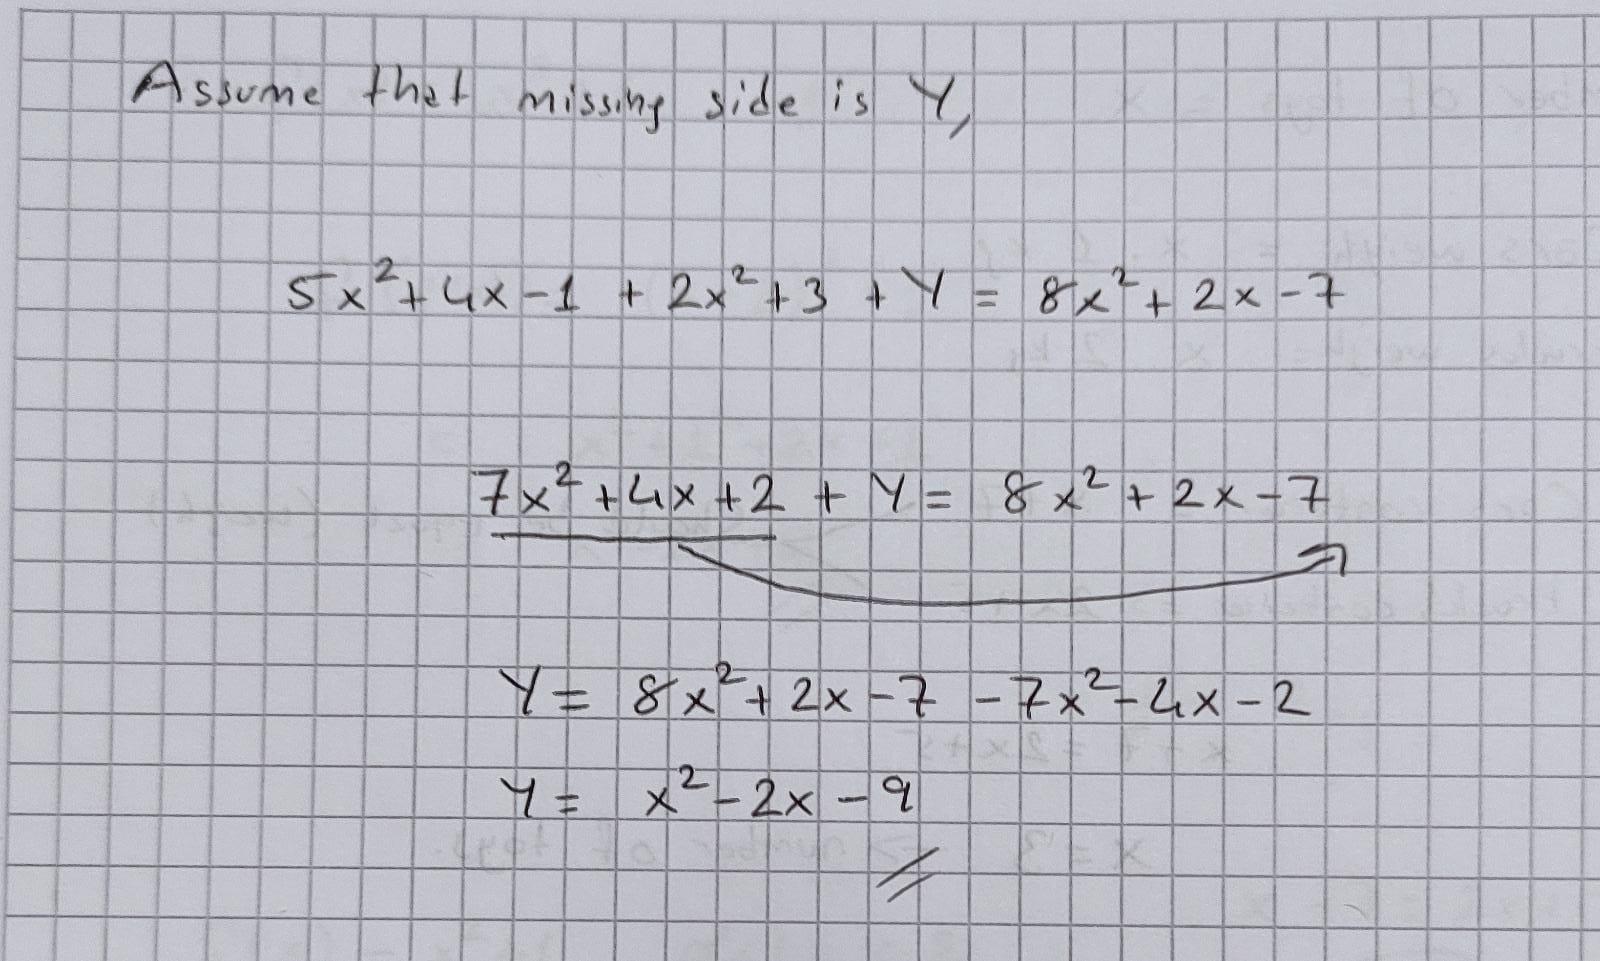 Assume that missing side is Y,
5x²+4x-1 + 2x²+3 + Y = 8x²+2x-7
7x²+4x+2 + Y = 8x²+2x-7
Y = 8x²+2x-7 -7x²-4x-2
Y = x²-2x-9